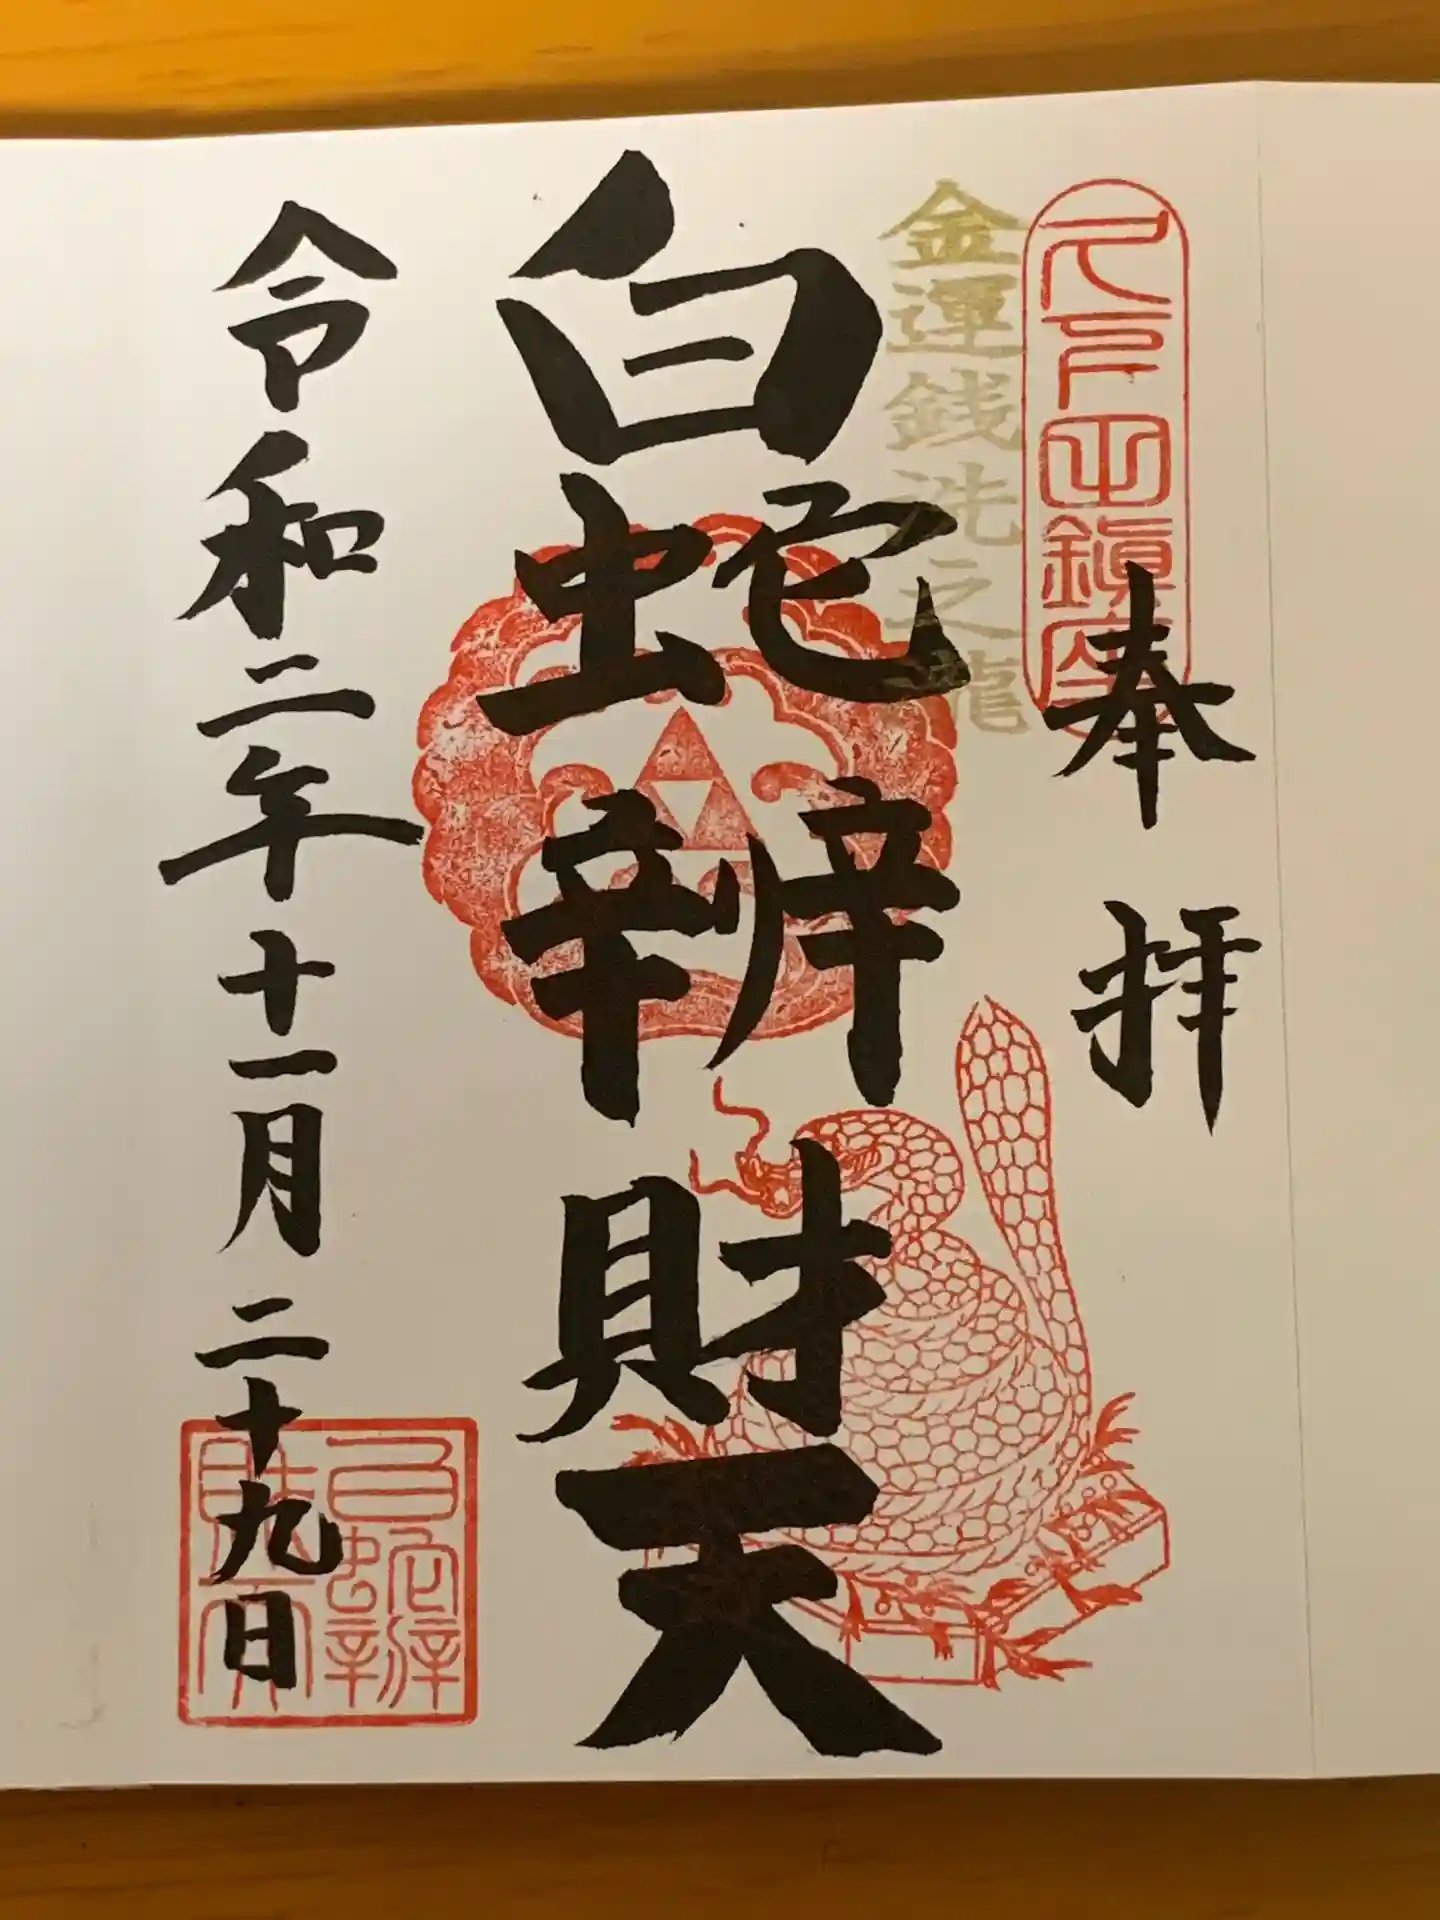 久下田鎮座
奉拝
金運銭洗之瀧
白蛇辨財天
令和二年十一月二十九日
白蛇辨
財天